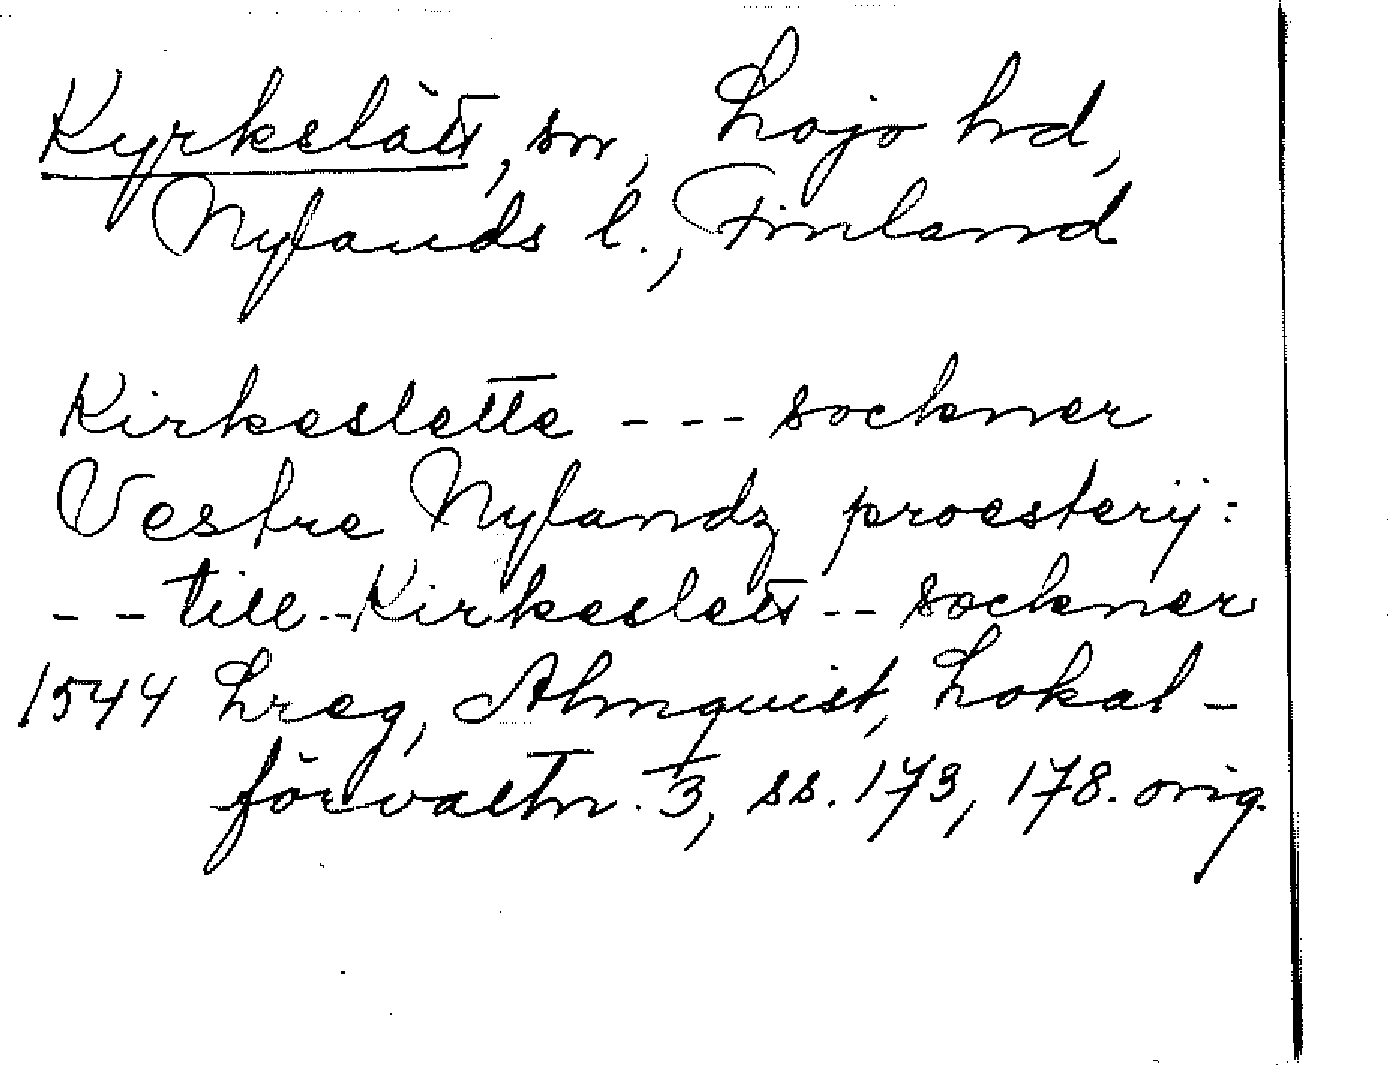 Kyrkslätt, sn, Lojo hd,
Nylands l., Finland
Kirkeslette - - - sockner
Vestre Nylandz proesterij:
- - till - Kirkeslett - - sockner
1544 Lreg, Almquist, Lokal-
förvaltn. 3, ss. 173, 178. orig.